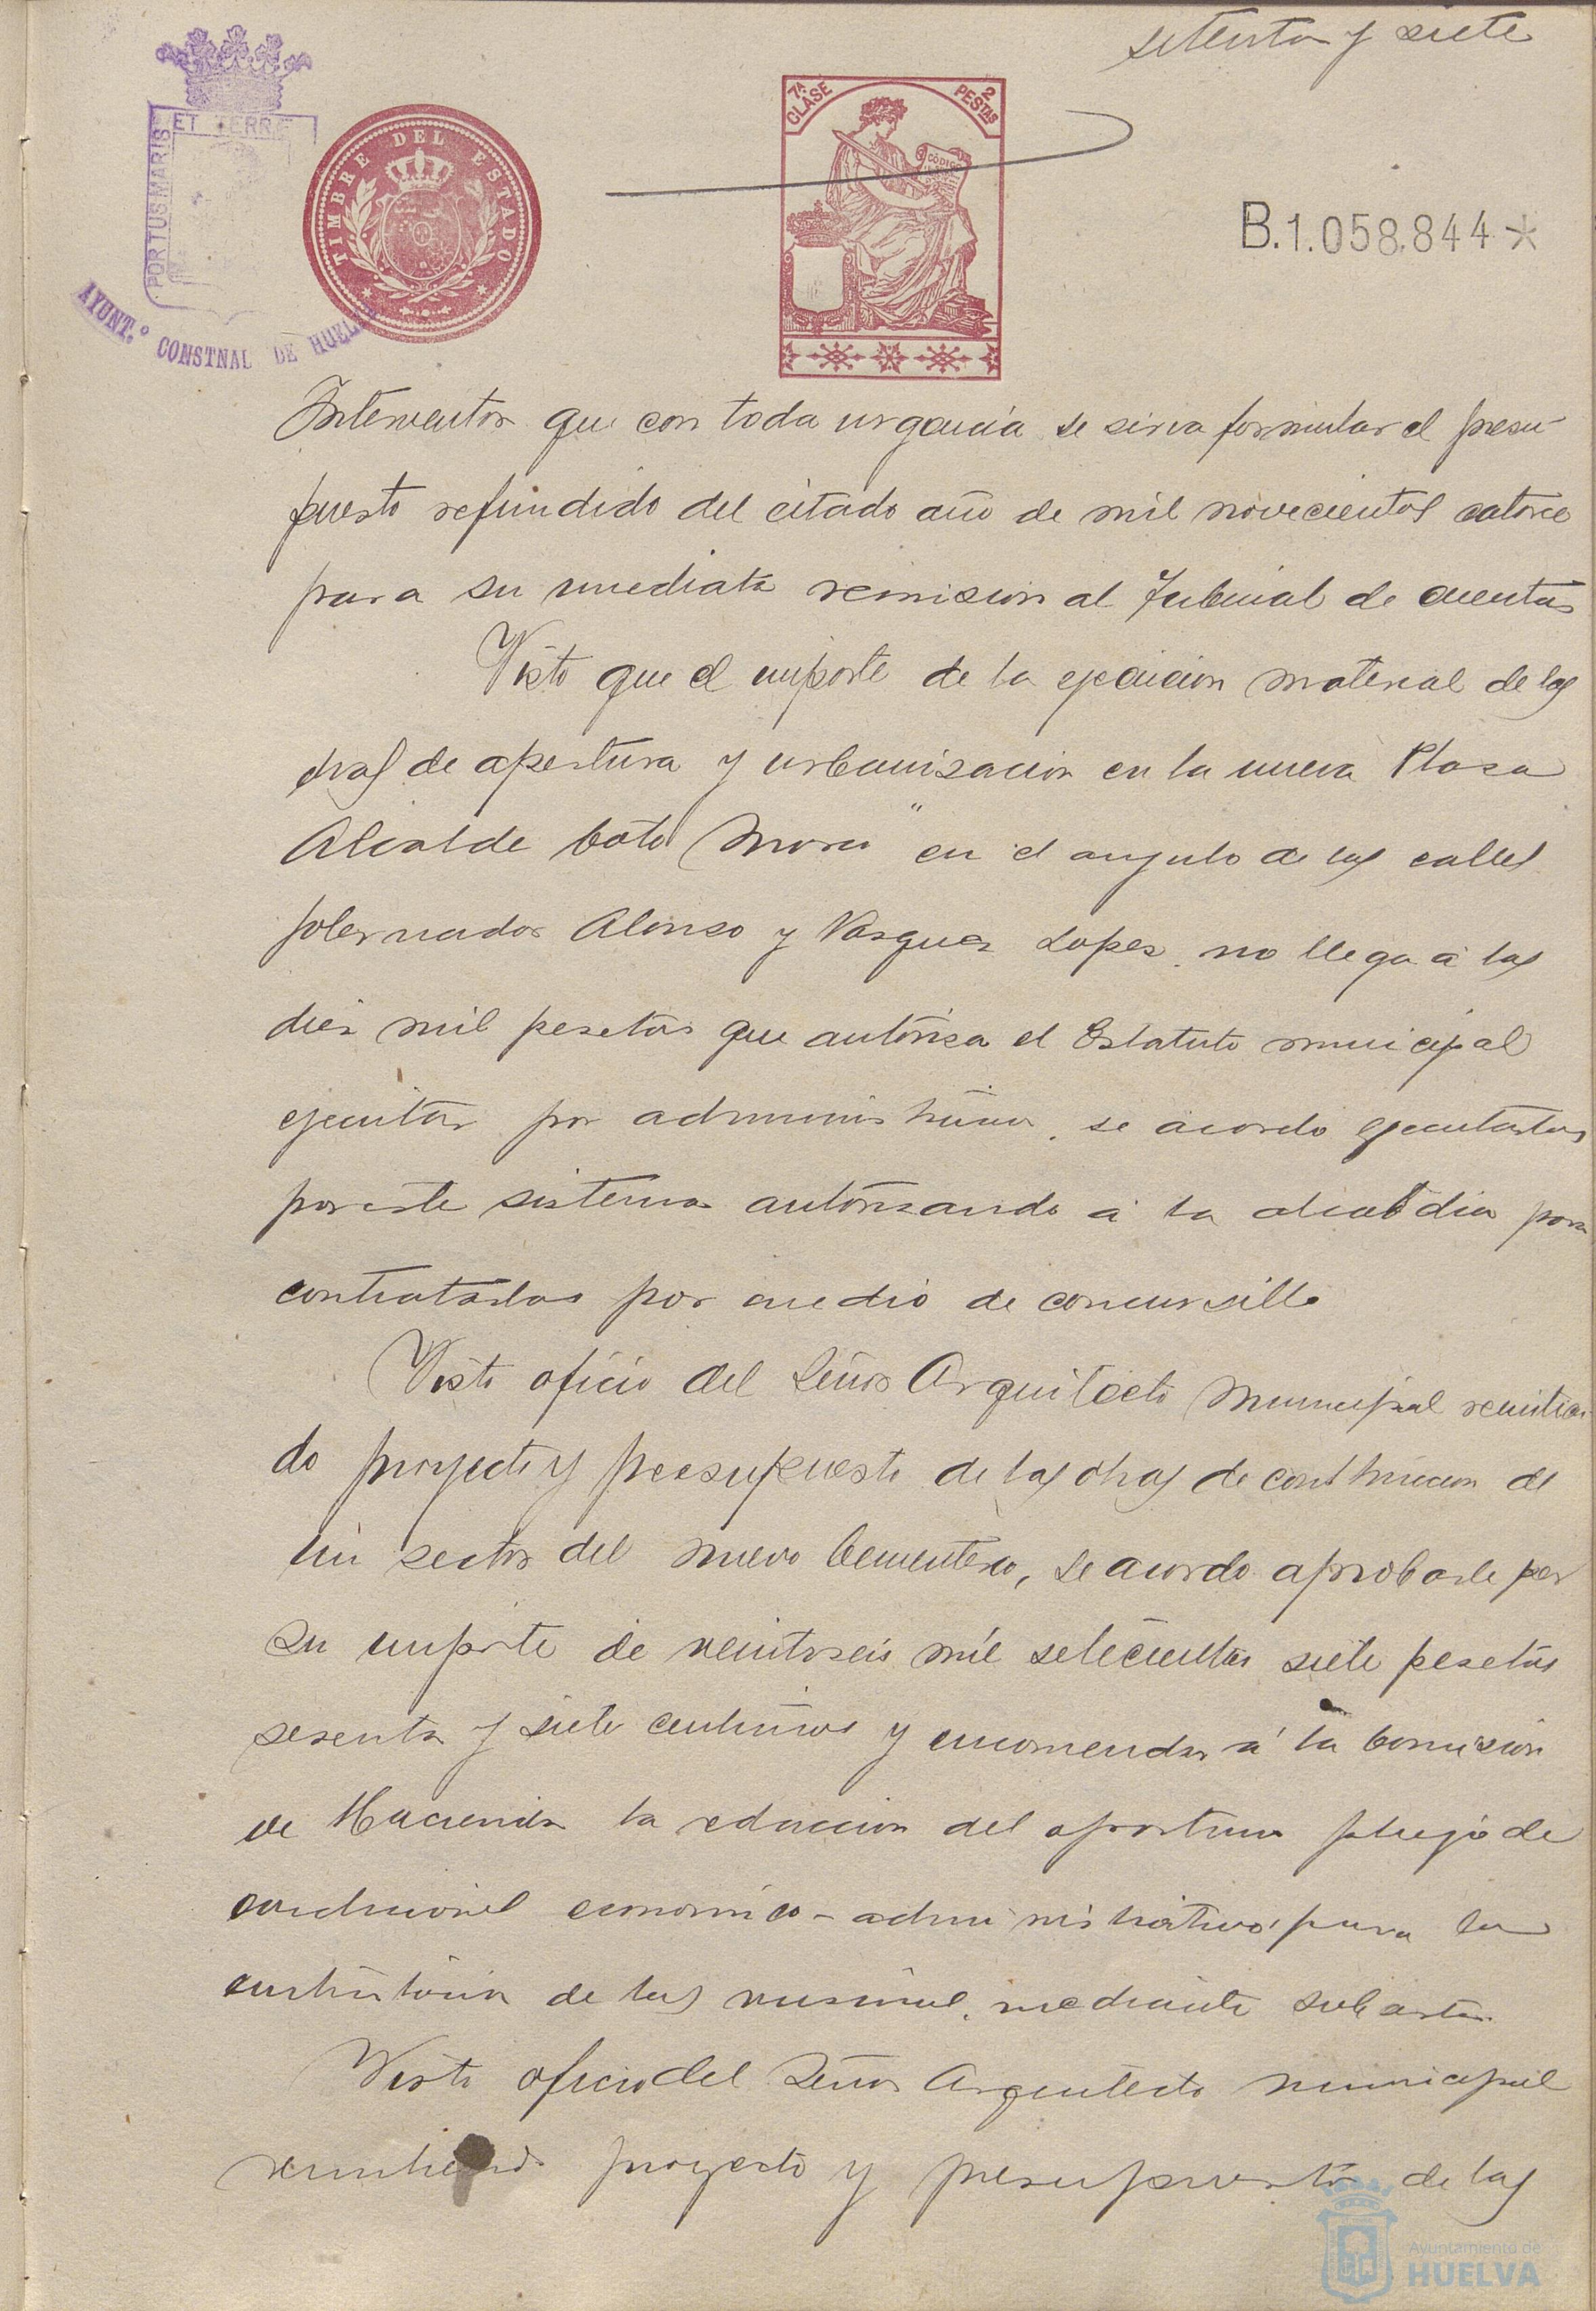 setenta y siete
PORTUS MARIS ET TERRE
AYUNT.º CONSTNAL DE HUELVA
TIMBRE DEL ESTADO
7ª CLASE
2 PESTAS
CÓDIGO
B.1.058.844*
Interventor que con toda urgencia se sirva formular el presu-
puesto refundido del citado año de mil novecientos catorce
para su inmediata remision al Tribunal de cuentas
Visto que el importe de la ejecucion material de las
obras de apertura y urbanizacion en la nueva Plaza
Alcalde Coto Mora" en el angulo de las calles
Gobernador Alonso y Vasquez Lopez, no llega á las
diez mil pesetas que autoriza el Estatuto municipal
ejecutar por administracion, se acordo ejecutarlas
por este sistema autorizando á la alcaldia para
contratarlas por medio de concursillo
Visto oficio del Señor Arquitecto Municipal remitien-
do proyecto y presupuesto de las obras de construccion de
un sector del nuevo Cementerio, se acordo aprobarle por
su importe de veintiseis mil setecientas siete pesetas
sesenta y siete centimos y encomendar á la Comision
de Hacienda la redaccion del oportuno pliego de
condiciones economico-administrativas para la
de las mismas, mediante subasta.
Visto oficio del Señor Arquitecto municipal
remitiendo proyecto y presupuesto de las
Ayuntamiento de
HUELVA